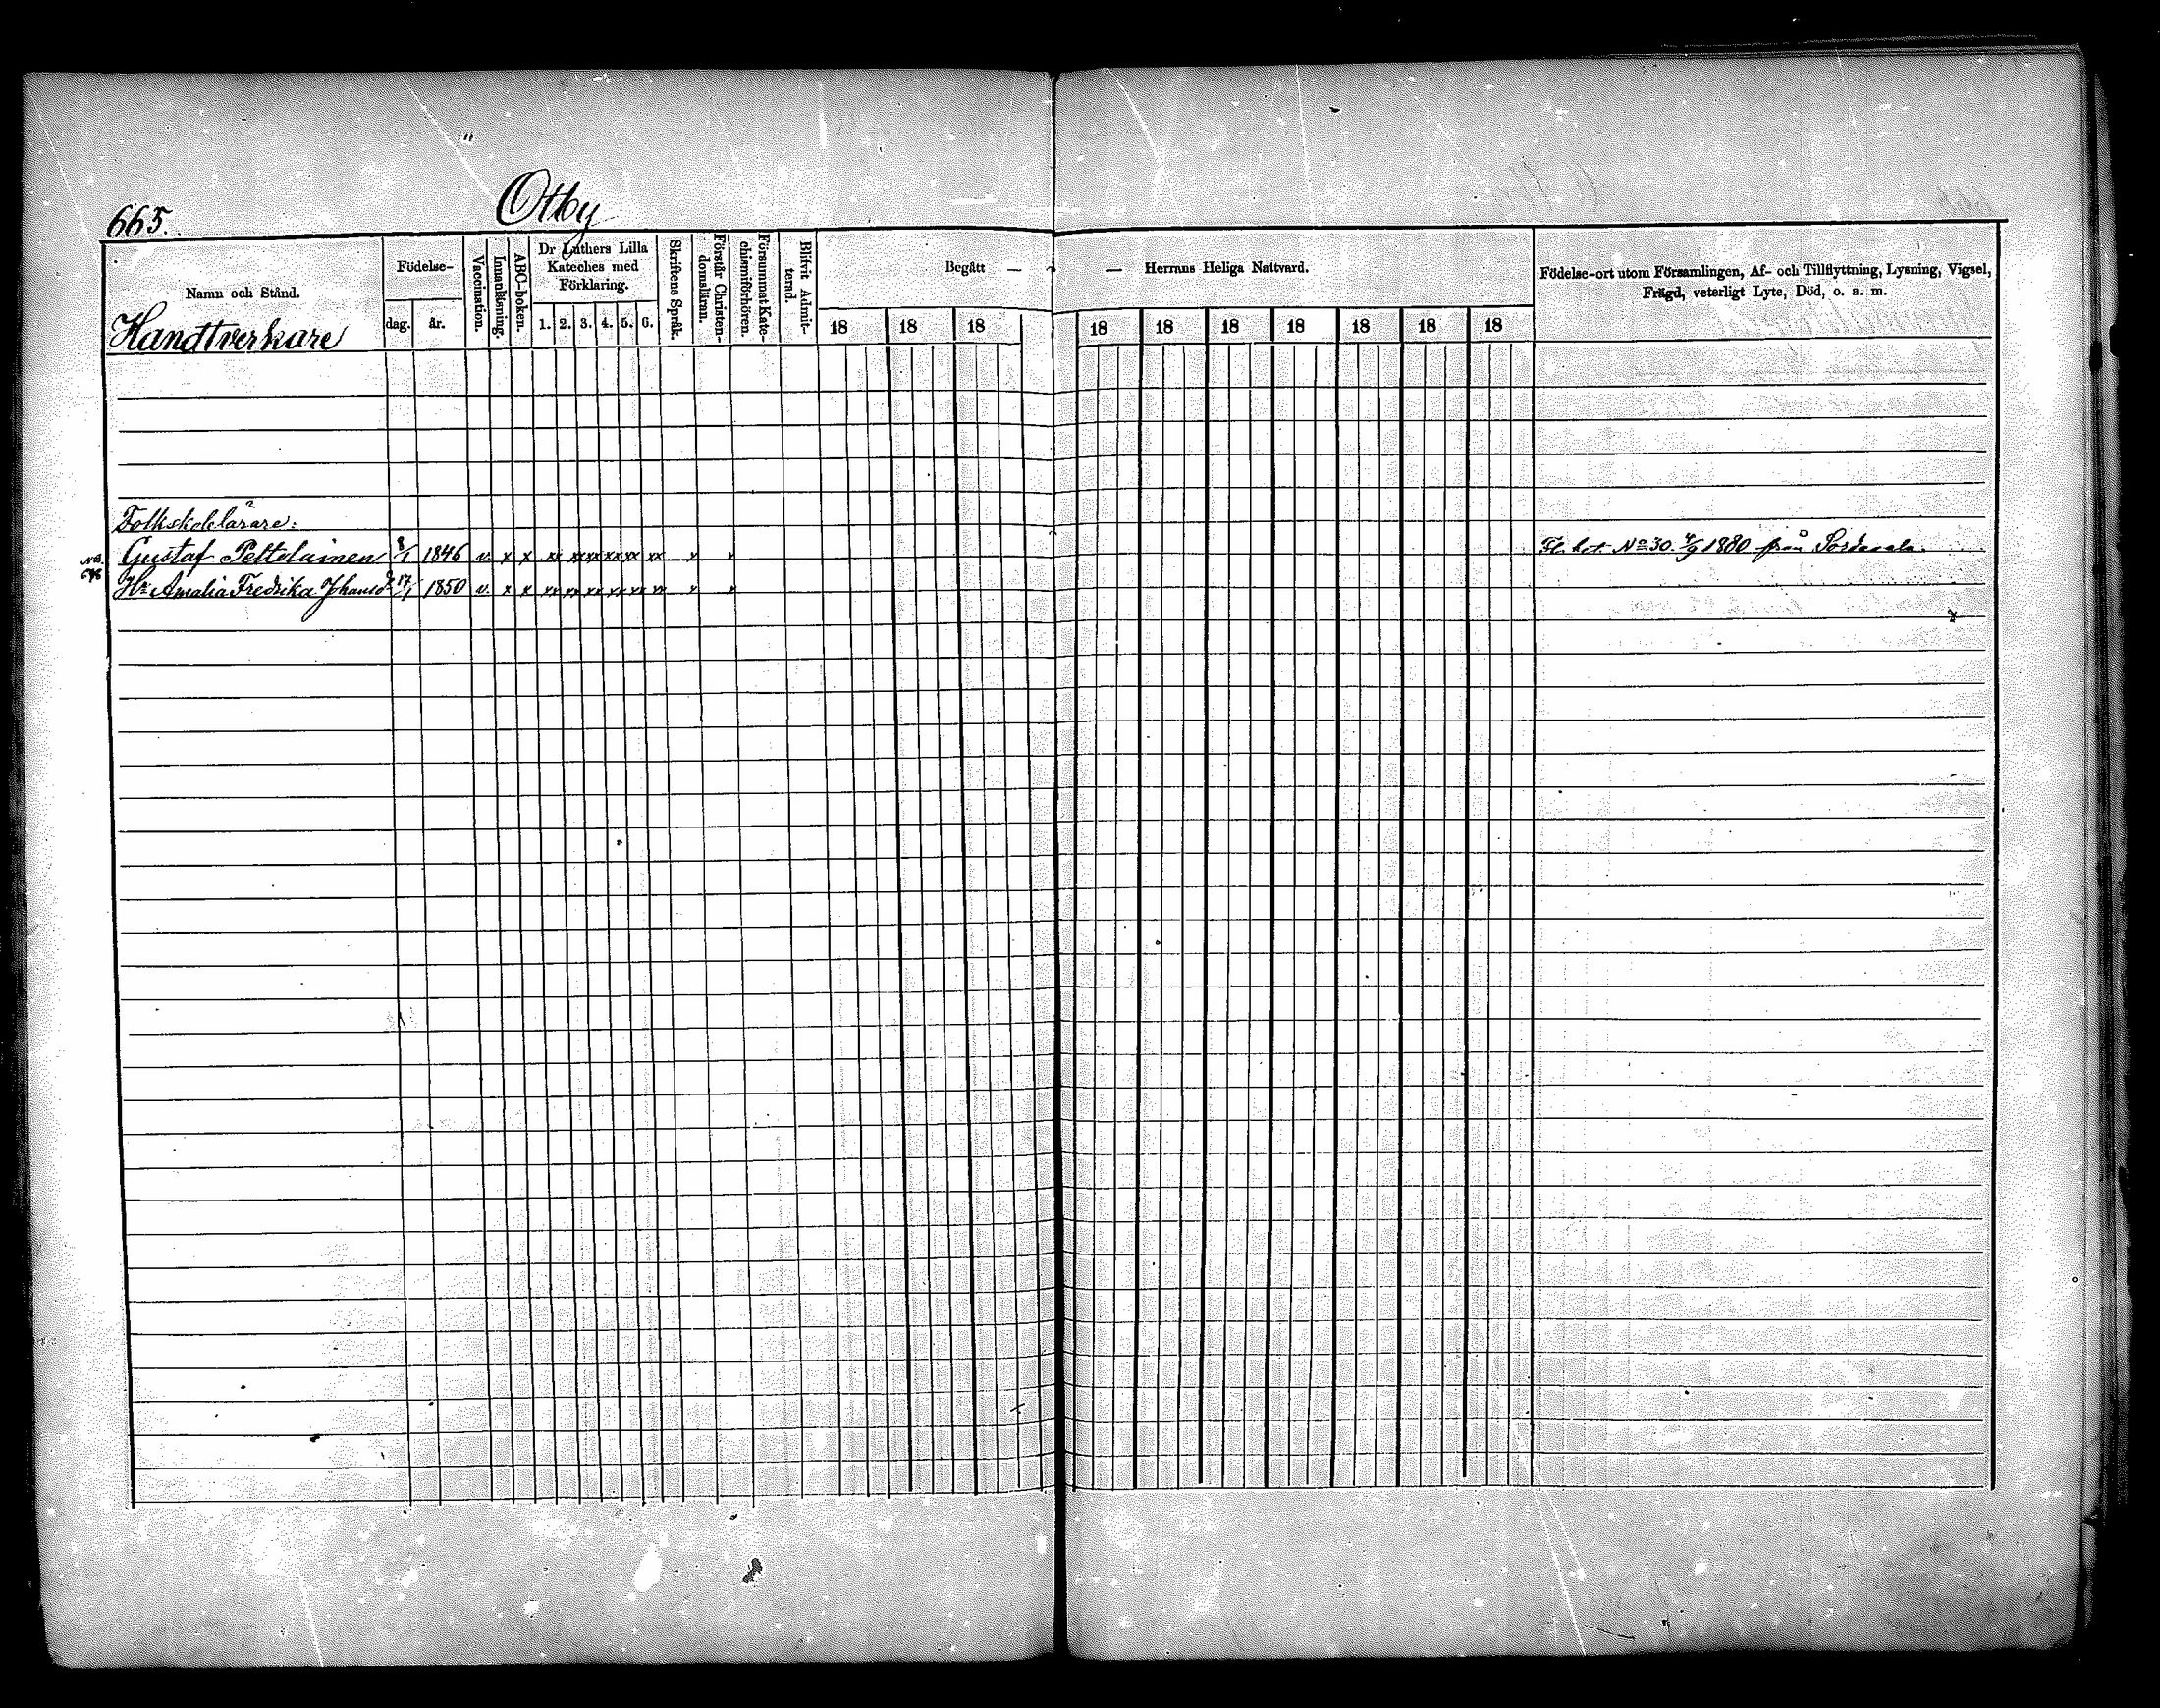 665.
Otby
Namn och Stånd.
Handtverkare
Födelse-
dag.
år.
Vaccination.
Innanläsning.
ABC-boken.
Dr Luthers Lilla
Kateches med
Förklaring.
1. 2. 3. 4. 5. 6.
Skriftens Språk.
Förstår Christen-
domsläran.
Försummat Kate-
chismiförhören.
Blifvit Admit-
terad.
Begått —
18 18 18
— Herrans Heliga Nattvard.
18 18 18 18 18 18 18
Födelse-ort utom Församlingen, Af- och Tillflyttning, Lysning, Vigsel,
Frägd, veterligt Lyte, Död, o. s. m.
Folkskolelärare:
Gustaf Pettelainen 8/1 1846 v. x x xx xx xx xx xx xx x x Fl. bet. No 30. 4/9 1880 från Sordavala.
NB.
Hu Amalia Fredrika Johansd. 17/1 1850 v. x x xx xx xx xx xx xx x x